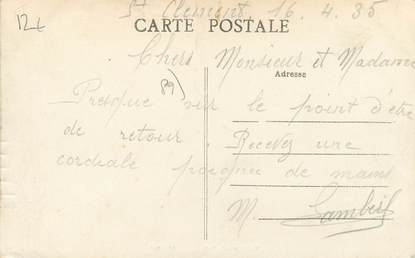 12€
St Clément, 16. 4. 35
CARTE POSTALE
Chers Monsieur et Madame
Adresse
89)
Presque sur le point d'être
de retour Recevez une
cordiale poignée de mains
M.